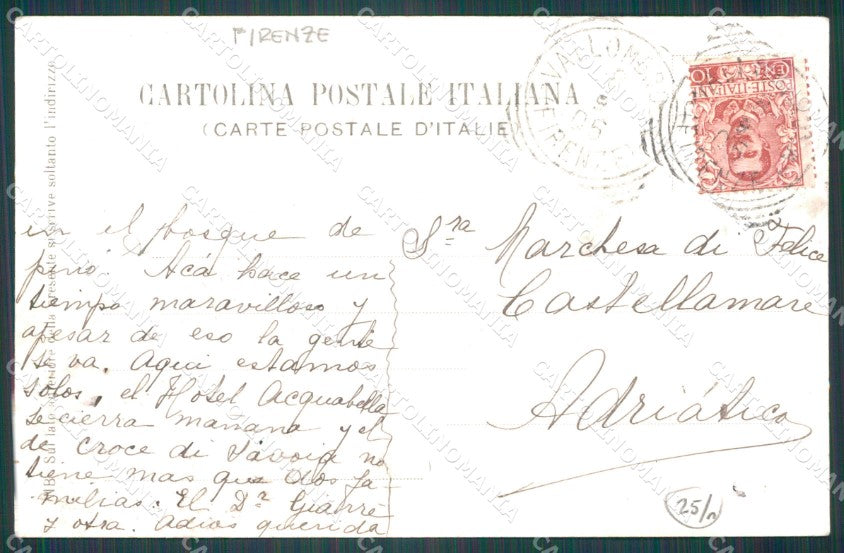 FIRENZE
CARTOLINA POSTALE ITALIANA
(CARTE POSTALE D'ITALIE)
NB. Sul lato anteriore della presente si scrive soltanto l'indirizzo
VALLOMBROSA
FIRENZE
POSTE ITALIANE
CENT. 10
in el bosque de
pino. Acá hace un
tiempo maravilloso y
apesar de eso la gente
se va. Aqui estamos
solos, el Hotel Acquabella
se cierra mañana y el
de Croce di Savoia no
tiene mas que dos fa
milias. El Dr. Gianré
y otra. Adios querida
Sra Marchesa di Felice
Castellamare
Adriático
25/n
CARTOLINOMANIA